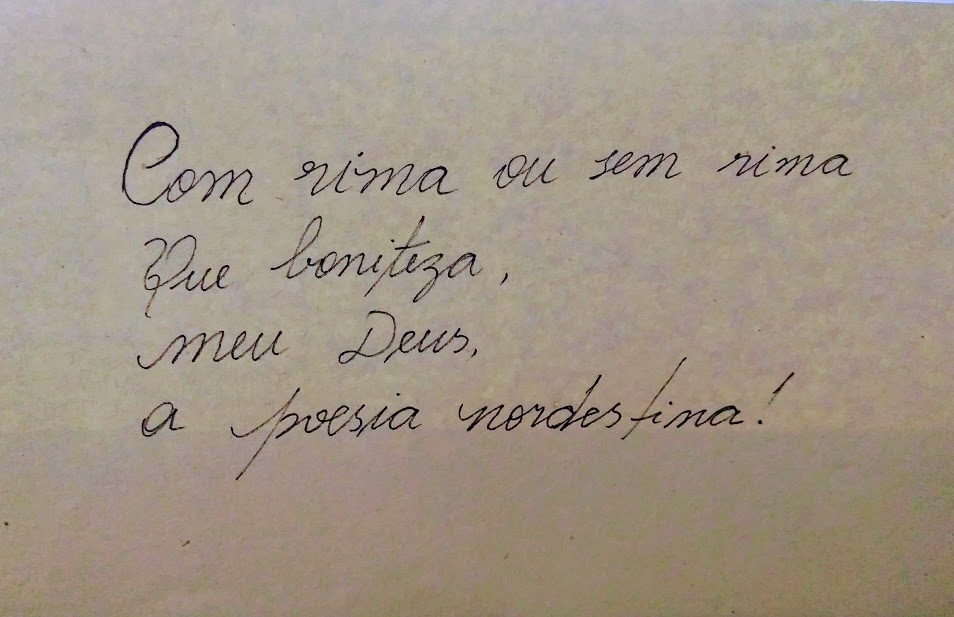 Com rima ou sem rima
Que boniteza,
meu Deus,
a poesia nordestina!